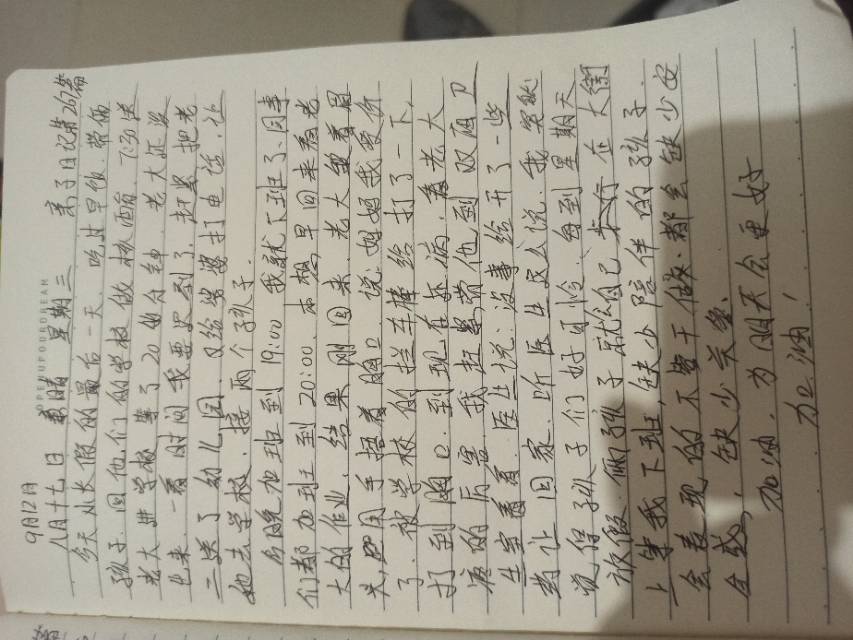 OPENUPOURDREAM
9月12日
八月十七日 晴 星期三 亲子日记第267篇
今天小长假的最后一天.吃过早饭.带俩
孩子.回他们的学校做核酸.7:30送
老大进学校等了20分钟.老大还没
出来.一看时间我要迟到了.赶紧把老
二送了幼儿园.又给婆婆打电话.让
她去学校.接两个孩子.
今晚加班到19:00我就下班了.同事
们都加班到20:00.本想早回来看老
大的作业 结果刚回来.老大皱着眉
头.用手捂着胸口 说.妈妈我受伤
了.被学校的拦车棒给打了一下.
打到胸口.到现在还疼.看老大
疼的厉害.我赶紧带他到双庙卫
生室看看.医生说:没事给开了一些
药让回家.听医生这么说.我突然
觉得孩子们好可怜.每到星期天
放假.俩孩子就自己在大街
上等我下班,缺少陪伴的孩子.
会表现的不善于做.都会缺少安
全感,缺少关爱.
加油.为明天会更好
加油!